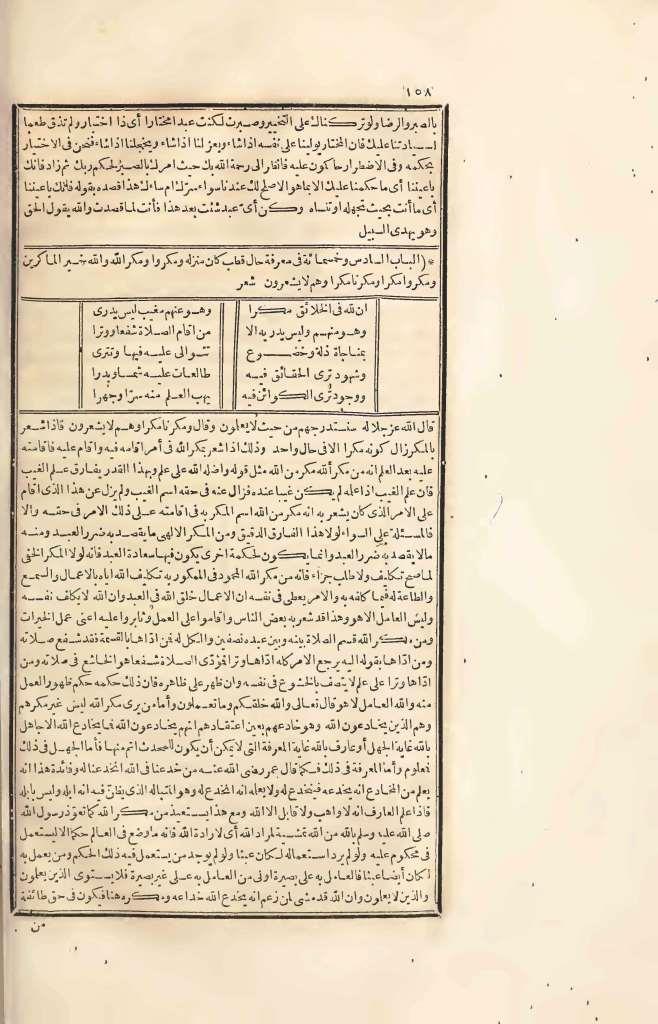 ١٥٨
بالصبر والرضا ولو تركناك على التخيير وصبرت لكنت عبدا مختارا أى ذا اختيار ولم تذق طعما
لسيادتنا عليك فان المختار يولينا على نفسه اذا شاء ويعزلنا اذا شاء ويخجلنا اذا شاء فنحن فى الاختيار
بحكمه وفى الاضطرار حاكمون عليه فانظر الى رحمة الله بك حيث امرك بالصبر لحكم ربك ثم زاد فانك
باعيننا أى ما حكمنا عليك الا بما هو الاصلح لك عندنا سواء سرّك ام ساءك هذا قصده بقوله فانك باعيننا
أى ما أنت بحيث تجهله او تنساه وكن أىّ عبد شئت بعد هذا فأنت لما قصدت والله يقول الحق
وهو يهدى السبيل
* (الباب السادس وخمسمائة فى معرفة حال قطب كان منزله ومكروا ومكر الله والله خير الماكرين
ومكروا مكرا ومكرنا مكرا وهم لا يشعرون شعر
ان لله فى الخلائق مكرا وهو عنهم مغيب ليس يدرى
وهو منهم وليس يدريه الا من اقام الصلاة شفعا ووترا
بمناجاة ذلة وخضوع تتوالى عليه فيها وتترى
وشهود ترى الحقائق فيه طالعات عليه شمسا وبدرا
ووجود ترى الكوائن فيه يهب العلم منه سرّا وجهرا
قال الله عز جلاله سنستدرجهم من حيث لا يعلمون وقال ومكرنا مكرا وهم لا يشعرون فاذا شعر
بالمكر زال كونه مكرا الا فى حال واحد وذلك اذا شعر بمكر الله فى أمر اقامه فيه واقام عليه فاقامته
عليه بعد العلم انه من مكر الله مكر من الله مثل قوله واضله الله على علم وبهذا القدر يفارق علم الغيب
فان علم الغيب اذا علمه لم يكن غيبا عنده فزال عنه فى حقه اسم الغيب ولم يزل عن هذا الذى اقام
على الامر الذى كان يشعر به انه مكر من الله اسم المكر به فى اقامته على ذلك الامر فى حقه والا
فالمسئلة على السواء لولا هذا الفارق الدقيق ومن المكر الالهى ما يقصد به ضرر العبد ومنه
ما لا يقصد به ضرر العبد وانما يكون لحكمة اخرى يكون فيها سعادة العبد فانه لولا المكر الخفى
لما صح تكليف ولا طلب جزاء فانه من مكر الله المحمود فى الممكور به تكليف الله اياه بالاعمال والسمع
والطاعة له فيما كلفه به والامر يعطى فى نفسه ان الاعمال خلق الله فى العبد وان الله لا يكلف نفسه
وليس العامل الا هو وهذا قد شعر به بعض الناس واقاموا على العمل وثابروا عليه اعنى عمل الخيرات
ومن مكر الله قسم الصلاة بينه وبين عبده نصفين والكل له فمن ادّاها بالقسمة فقد شفع صلاته
ومن ادّاها بقوله اليه يرجع الامر كله ادّاها وترا فمؤدّى الصلاة شفعا هو الخاشع فى صلاته ومن
ادّاها وترا على علم لا يتصف بالخشوع فى نفسه وان ظهر على ظاهره فان ذلك حكمه حكم ظهور العمل
منه والله العامل لا هو قال تعالى والله خلقكم وما تعملون وأما من يرى مكر الله ليس غير مكرهم
وهم الذين يخادعون الله وهو خادعهم بعين اعتقادهم انهم يخادعون الله فما يخادع الله الا جاهل
بالله غاية الجهل أو عارف بالله غاية المعرفة التى لا يمكن أن يكون للمحدث اتم منها فأما الجهل فى ذلك
فمعلوم وأما المعرفة فى ذلك فكما قال عمر رضى الله عنه من خدعنا فى الله انخدعنا له وفائدة هذا انه
يعلم من المخادع انه يخدعه فينخدع له ولا يعلمه انه انخدع له وهو المتباله الذى يظنّ فيه انه ابله وليس بابله
فاذا علم العارف انه لا واهب ولا قابل الا الله ومع هذا يستعيذ من مكر الله كما تعوّذ رسول الله
صلى الله عليه وسلم بالله من الله تمشية لمراد الله أى لارادة الله فانه ما وضع فى العالم حكما الا ليستعمل
فى محكوم عليه ولو لم يرد استعماله لكان عبثا ولو لم يوجد من يستعمل فيه ذلك الحكم ومن يعمل به
لكان أيضا عبثا فالعامل به على بصيرة اولى من العامل به على غير بصيرة فلا يستوى الذين يعلمون
والذين لا يعلمون وان الله قد مشى لمن زعم انه يخدع الله خداعه ومكره هنا فيكون فى حق طائفة
من